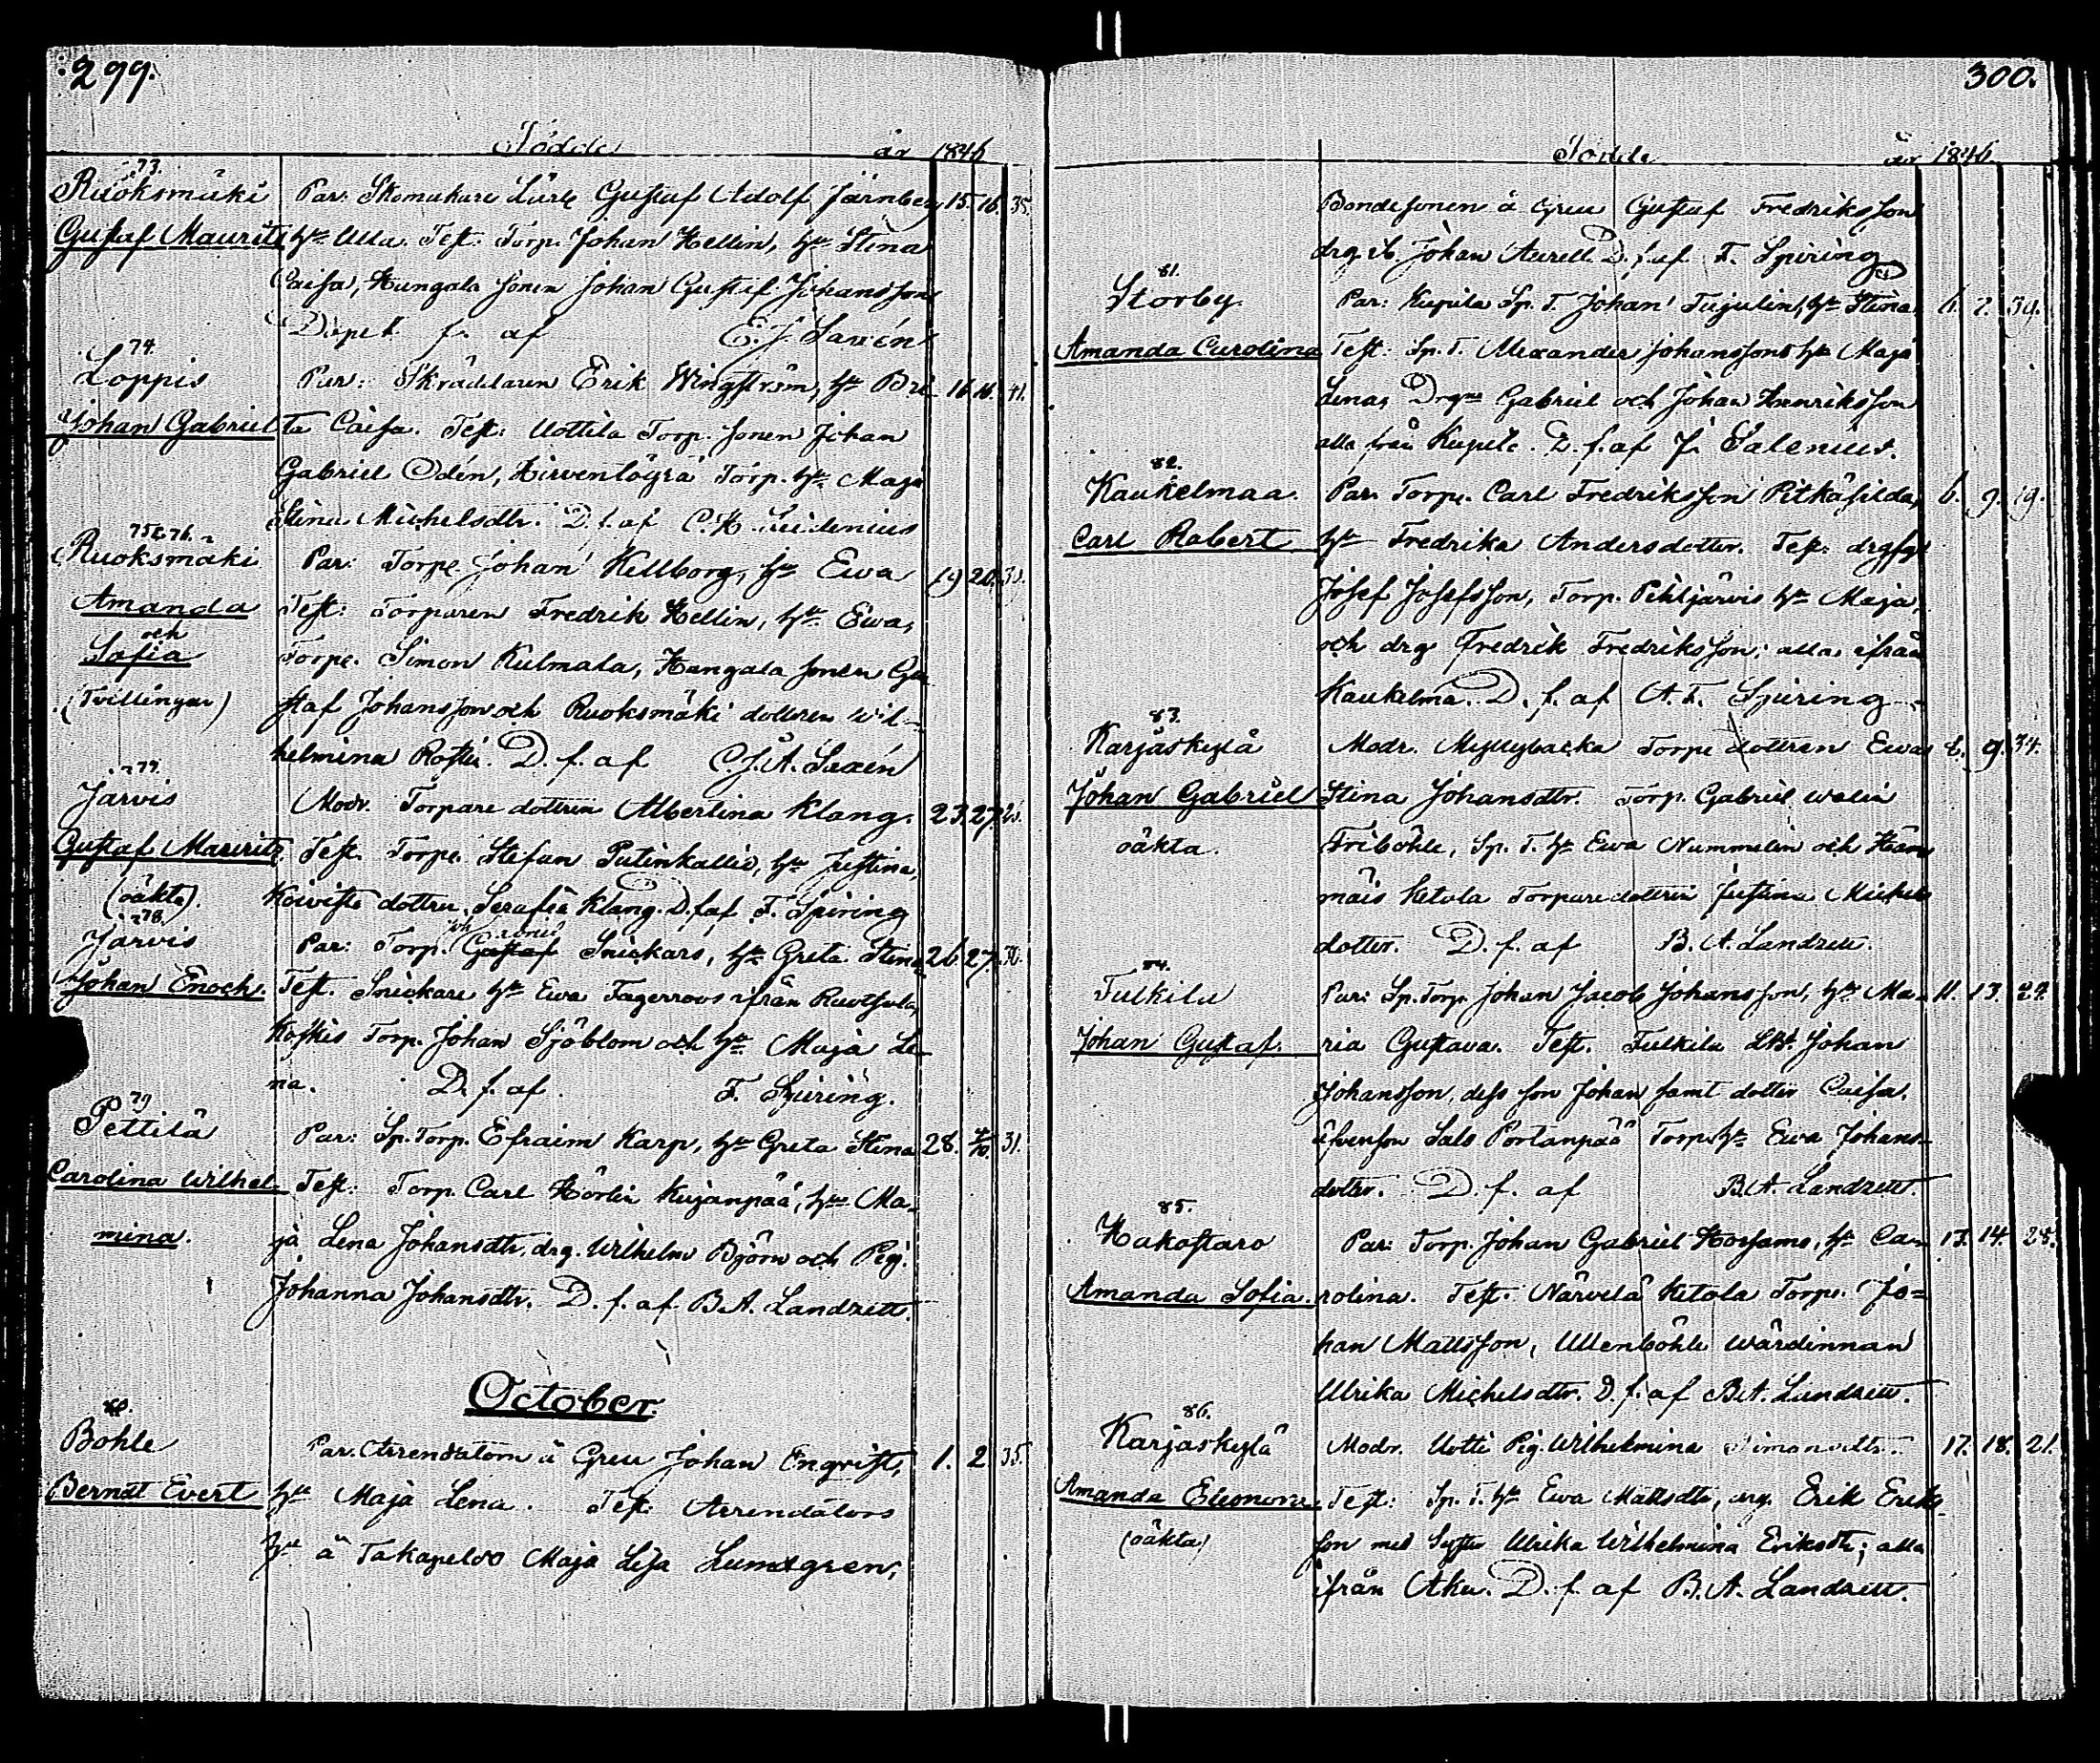 299.
Födde år 1846
73.
Ruoksmäki Par: Skomakare Lärl. Gustaf Adolf Järnberg 15. 16. 35.
Gustaf Mauritz hu Ulla. Test: Torp. Johan Hellin, hu Stina
Caisa, Hungala sonen Johan Gustaf Johansson
Döpt f. af E. J. Saxén
74.
Loppis Par: Skräddaren Erik Wingström, hu Bri- 16. 16. 41.
Johan Gabriel ta Caisa. Test: Uottila Torp. sonen Johan
Gabriel Odén, Hirvenlögrä Torp. hu Maja
Stina Michelsdtr. D. f. af C. H. Leidenius
75 & 76.
Ruoksmäki Par: Torpe. Johan Kellborg, hu Ewa 19 20.
Amanda Test: Torparen Fredrik Hellin, hu Ewa,
och
Sofia Torpe. Simon Kulmala, Hungala sonen Gu
(Tvillingar) staf Johansson och Ruoksmäki dottren Wil-
helmina Rosti. D. f. af C. J. A. Saxén
77.
Järvis Modr. Torpare dottren Albertina Klang. 23. 27.
Gustaf Mauritz Test. Torpe. Stefan Putinkallio, hu Justina,
(oäkta). Koivisto dottren Serafia Klang. D. f. af F. Spiring
78.
Järvis Par: Torp. Gustaf Snickars, hu Greta Stina 26. 27.
Johan Enoch. Test. Snickare hu Ewa Fagerroos ifrån Ruotsula,
Koskis Torp. Johan Sjöblom och hu Maja Le-
na. D. f. af F. Spiring.
79
Pettilä Par: Sp. Torp. Efraim Karp, hu Greta Stina 28. 4/10. 31.
Carolina Wilhel- Test: Torp. Carl Hörlin Kujanpää, hu Ma-
mina. ja Lena Johansdtr, drg. Wilhelm Björn och Pig.
Johanna Johansdtr. D. f. af B. A. Landzett.
October.
80.
Böhle Par. Arrendatorn å Greu Johan Engvist, 1. 2 35.
Berndt Evert hu Maja Lena. Test: Arrendators
hu å Takapeldo Maja Lisa Lundgren,
300.
Födde år 1846
Bondesonen å Greu Gustaf Fredriksson
drg. Johan Aurell. D. f. af F. Spiring
81.
Storby Par: Kupila Sp. T. Johan Tujulin, hu Stina. 6. 7. 39.
Amanda Carolina Test: Sp. T. Alexander Johanssons hu Maja
Lena, Drgne Gabriel och Johan Henriksson
alla från Kupila. D. f. af J. Salenius.
82.
Kaukelmaa. Par. Torpe. Carl Fredriksson Pitkäsilda, 6. 9. 19.
Carl Robert hu Fredrika Andersdotter. Test:
Josef Josefsson, Torp. Pehtjärvis hu Maja,
och drg Fredrik Fredriksson; alla ifrån
Kaukelma. D. f. af A. F. Spiring
83.
Karjaskylä Modr. Myllybacka Torpe dottren Ewa 8. 9. 34.
Johan Gabriel Stina Johansdtr. Torp. Gabriel Welin
oäkta. Friböhle, Sp. T. hu Ewa Nummelin och Hän
mäis Ketola Torparedottren Justina Michels
dotter. D. f. af B. A. Landzett.
84.
Tulkila Par: Sp. Torp. Johan Jacob Johansson, hu Ma- 11. 13. 29.
Johan Gustaf. ria Gustava. Test. Tulkila LBd. Johan
Johansson, dess son Johan samt dotter Caisa.
äfvensom Salo Portanpää Torp. hu Ewa Johans-
dotter. D. f. af B. A. Landzett.
85.
Kakostaro Par: Torp. Johan Gabriel Korsamo, hu Ca- 13. 14. 28.
Amanda Sofia. rolina. Test. Närvelä Ketola Torpe. Jo-
han Mattsson, Ullenböhle wärdinnan
Ulrika Michelsdtr. D. f. af B. A. Landzett.
86.
Karjaskylä Modr. Uotti Pig. Wilhelmina Simonsdtr. 17. 18. 21.
Amanda Eleonora. Test: Sp. T. hu Ewa Mattsdtr, drg. Erik Eriks
(oäkta) son med Syster Ulrika Wilhelmina Eriksdtr; alla
ifrån Uku. D. f. af B. A. Landzett.